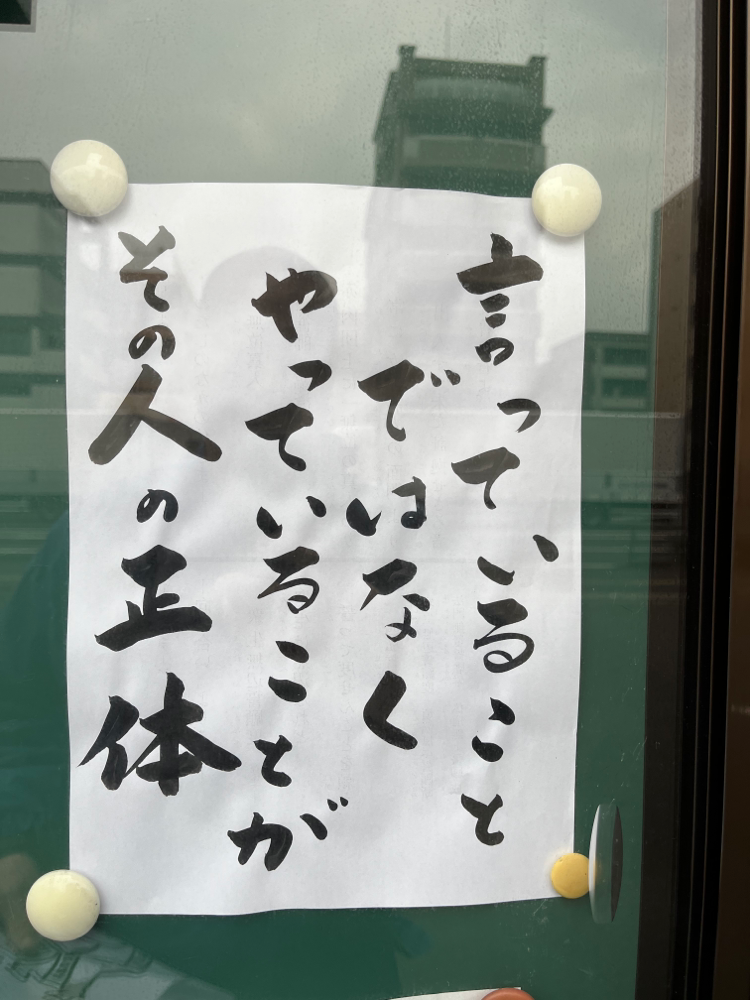 言っていること
ではなく
やっていることが
その人の正体